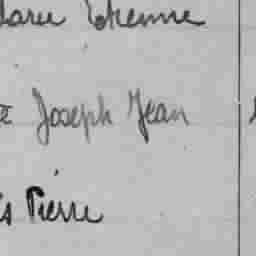 Etienne
Joseph Jean
Pierre